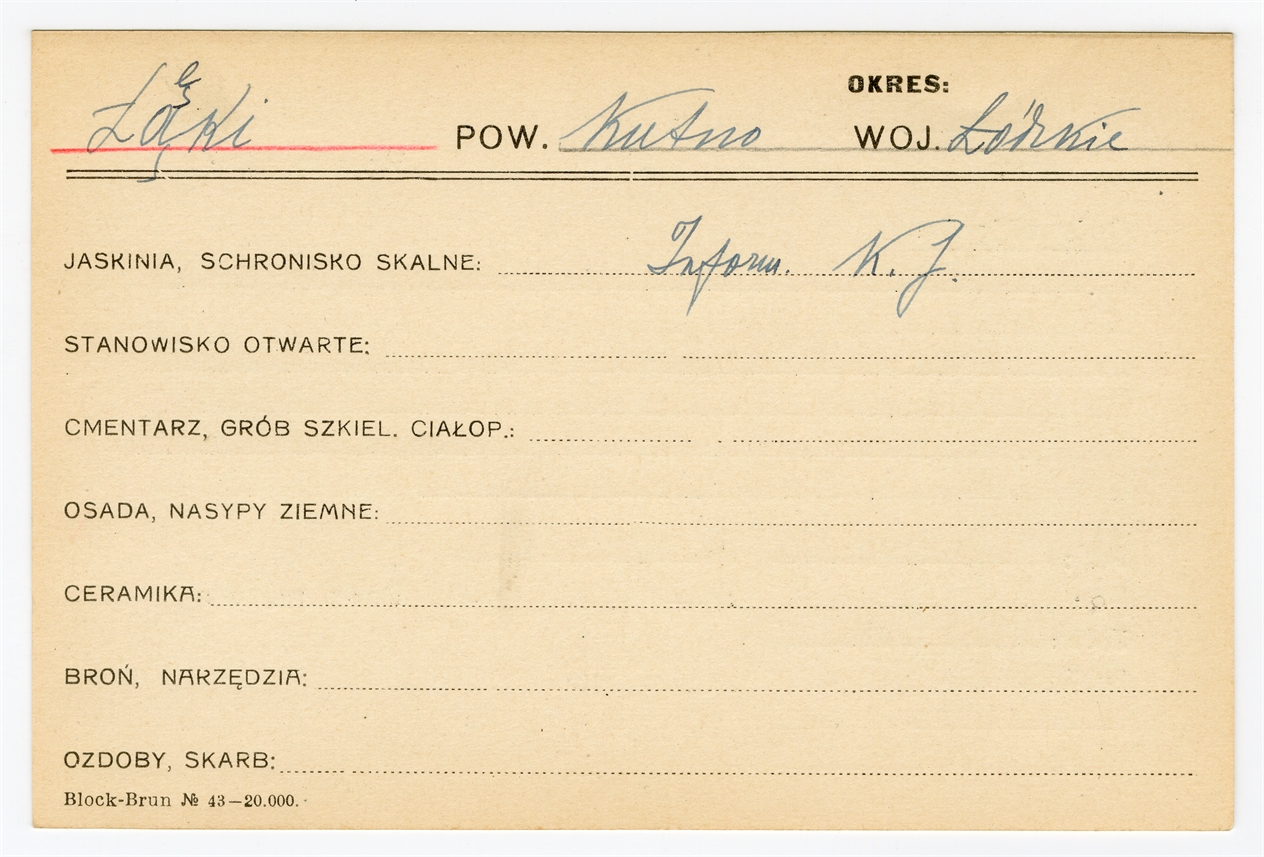 ę
OKRES:
Łąki POW. Kutno WOJ. Łódzkie
JASKINIA, SCHRONISKO SKALNE: Inform. K. J.
STANOWISKO OTWARTE:
CMENTARZ, GRÓB SZKIEL. CIAŁOP.:
OSADA, NASYPY ZIEMNE:
CERAMIKA:
BROŃ, NARZĘDZIA:
OZDOBY, SKARB:
Block-Brun № 43—20.000.